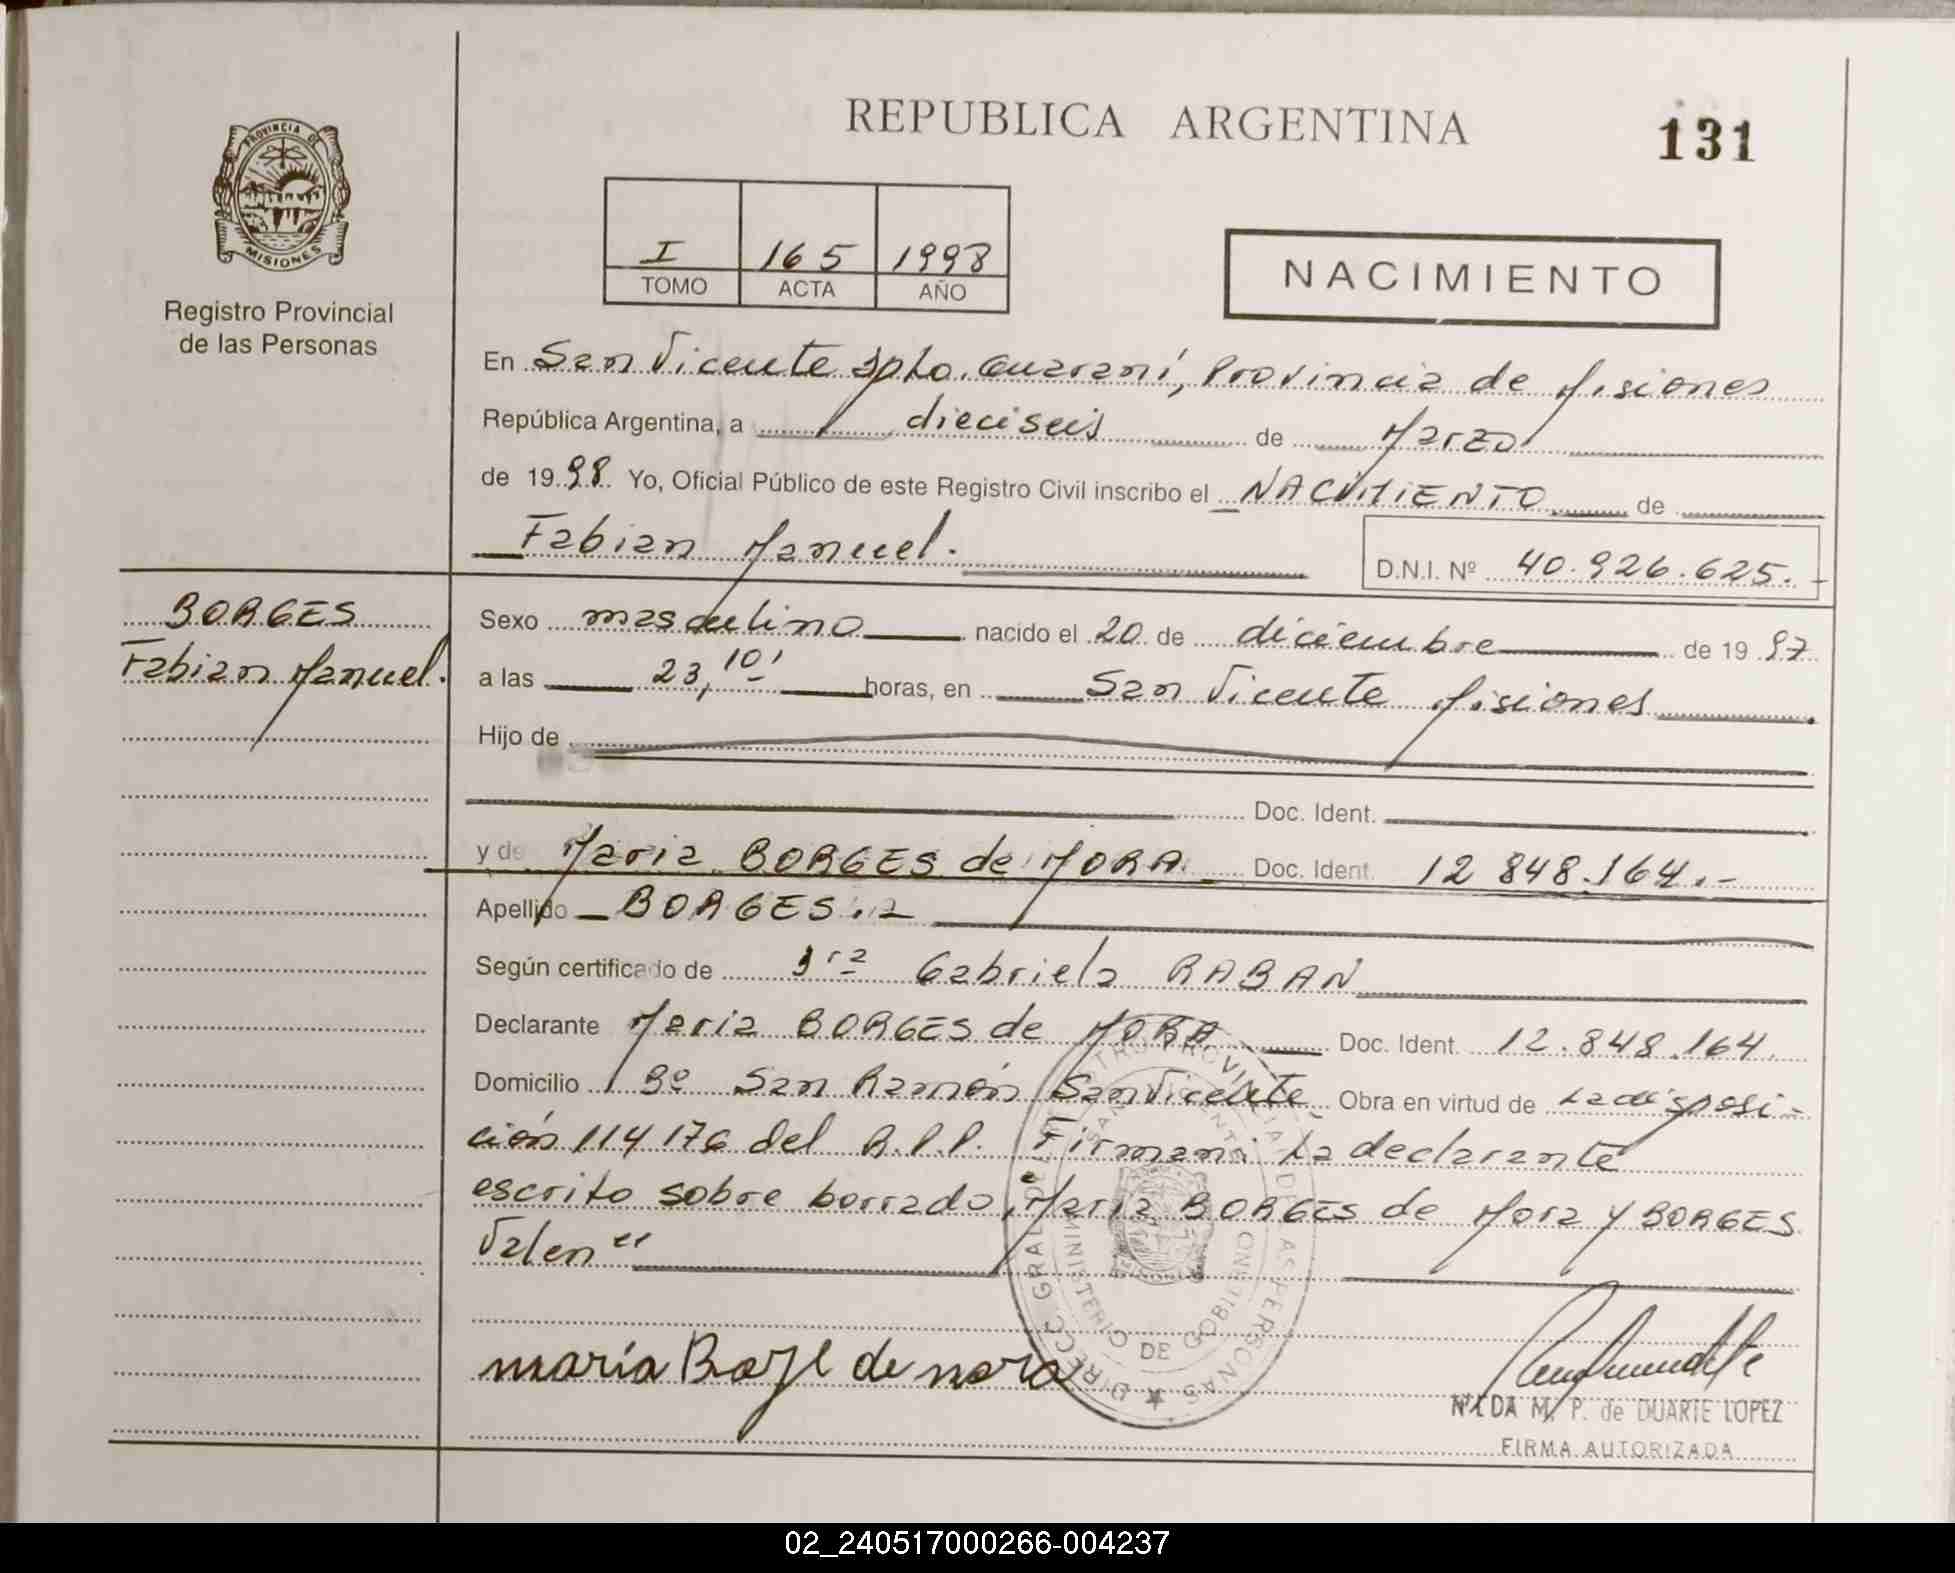 REPUBLICA ARGENTINA
131
PROVINCIA DE
MISIONES
Registro Provincial
de las Personas
I 165 1998
TOMO ACTA AÑO
NACIMIENTO
En San Vicente Dpto. Guaraní, Provincia de Misiones
República Argentina, a dieciseis de Marzo
de 1998 Yo, Oficial Público de este Registro Civil inscribo el NACIMIENTO de
Fabian Manuel.
D.N.I. Nº 40.926.625.-
BORGES
Fabian Manuel.
Sexo masculino nacido el 20 de diciembre de 1997
a las 23,10' horas, en San Vicente Misiones
Hijo de
Doc. Ident.
y de Maria BORGES de MORA. Doc. Ident. 12 848.164.-
Apellido BORGES
Según certificado de Dra Gabriela RABAN
Declarante Maria BORGES de MORA Doc. Ident. 12.848.164.
Domicilio Bº San Ramón San Vicente Obra en virtud de La disposi-
ción 114176 del R.P.P. Firman: La declarante
escrito sobre borrado: Maria BORGES de Mora y BORGES
Valen"
maria Borge de mora
DIRECC. GRAL. DEL REGISTRO PROVINCIAL DE LAS PERSONAS
SAN VICENTE MISIONES
MINISTERIO DE GOBIERNO
NILDA M. P. de DUARTE LOPEZ
FIRMA AUTORIZADA
02_240517000266-004237